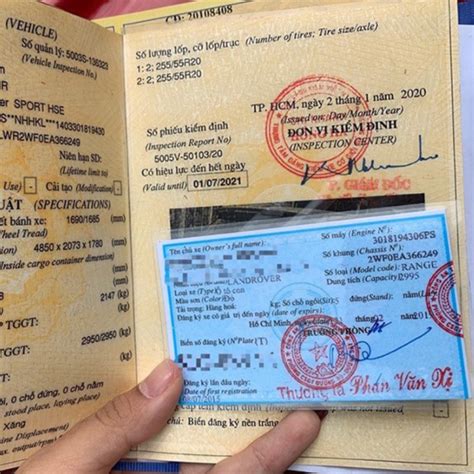 (VEHICLE)
Số quản lý: 5003S-136323
(Vehicle Inspection No.)
SPORT HSE
S**NHHKL***1403301819430
LWR2WF0EA366249
Niên hạn SD:
(Lifetime limit to)
Use) - Cải tạo (Modification) -
UẬT (SPECIFICATIONS)
ết bánh xe: 1690/1685 (mm)
heel Tread)
4850 x 2073 x 1780 (mm)
Inside cargo container dimension)
(mm)
(mm)
2147 (kg)
(kg)
TGGT: 2950/2950 (kg)
TGGT: (kg)
ỗi, 0 chỗ đứng, 0 chỗ nằm
stood place, laying place)
Engine Displacement)
max. output/rpm)
CĐ: 20108408
Số lượng lốp, cỡ lốp/trục (Number of tires; Tire size/axle)
1: 2; 255/55R20
2: 2; 255/55R20
TP. HCM, ngày 2 tháng 1 năm 2020
(Issued on: Day/Month/Year)
Số phiếu kiểm định
(Inspection Report No)
5005V-50103/20
ĐƠN VỊ KIỂM ĐỊNH
(INSPECTION CENTER)
Có hiệu lực đến hết ngày
(Valid until) 01/07/2021
P. GIÁM ĐỐC
Tên chủ xe (Owner's full name):
LANDROVER
Loại xe (Type) ô tô con
Màu sơn (Color) Đỏ
Tải trọng: Hàng hoá: kg;
Số máy (Engine N°):
3018194306PS
Số khung (Chassis N°):
2WF0EA366249
Số loại (Model code): RANGE
Dung tích (Capacity): 2995
Số chỗ ngồi (Sit): 5 đứng (Stand):
Đăng ký xe có giá trị đến ngày (date of expiry)
Hồ Chí Minh,
TRƯỞNG PHÒNG
Biển số đăng ký (N° Plate)
Đăng ký lần đầu ngày:
Date of first registration
/07/2015
Thượng tá Phan Văn
Biển đăng ký nền trắng